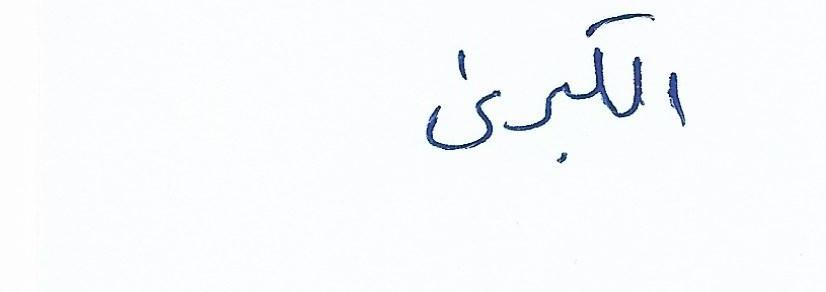 الكبرىٰ